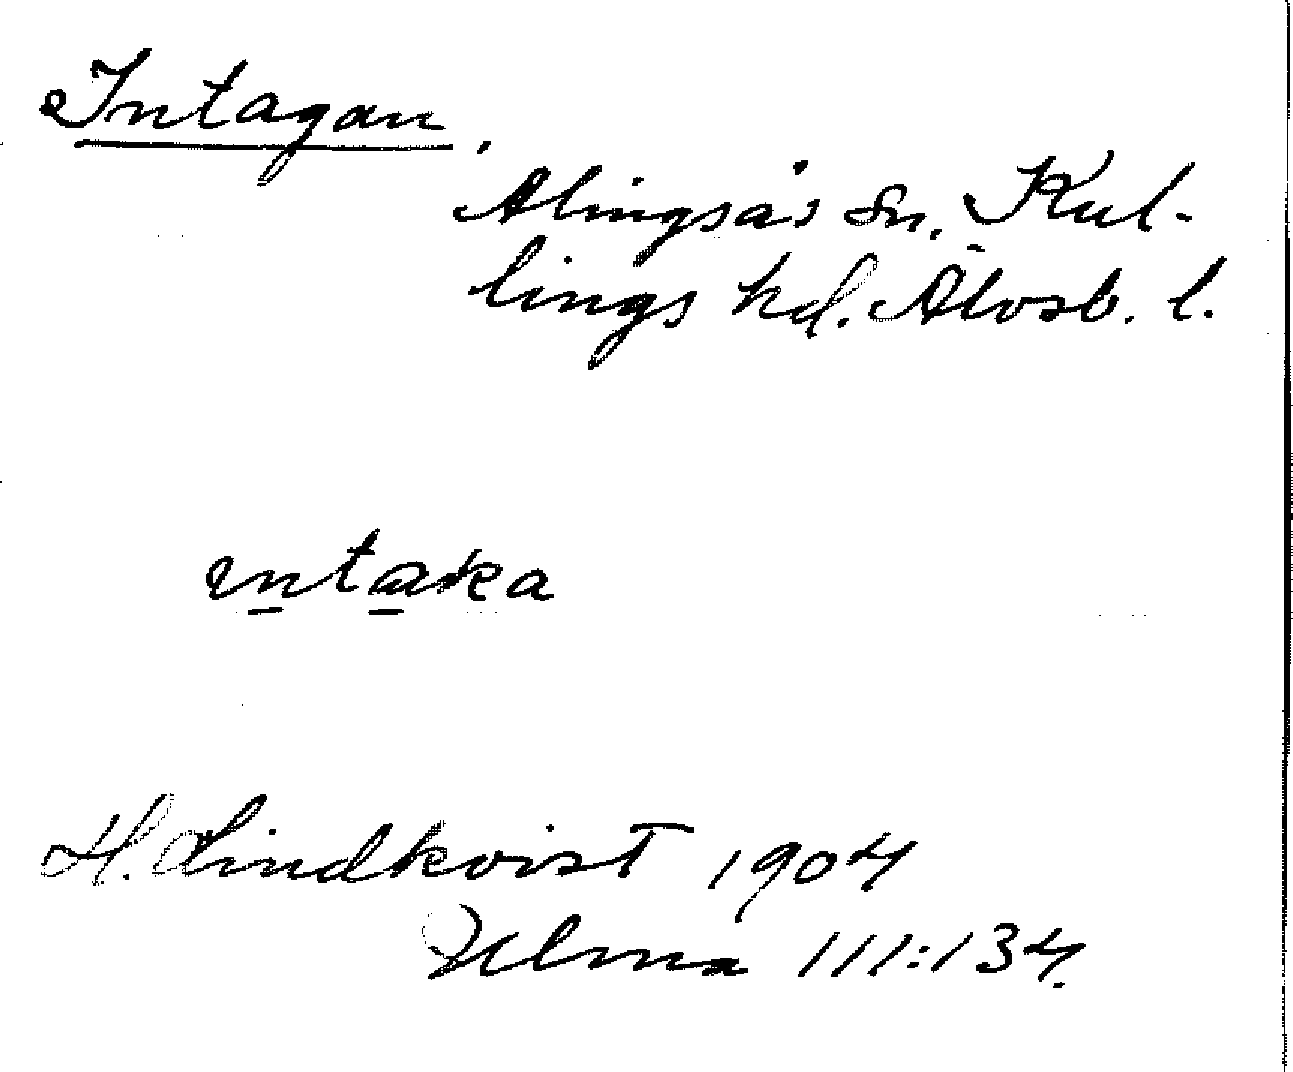 Intagan.
Alingsås sn, Kul-
lings hd. Älvsb. l.
intaka
H. Lindkvist 1904
Ulma 111:134.